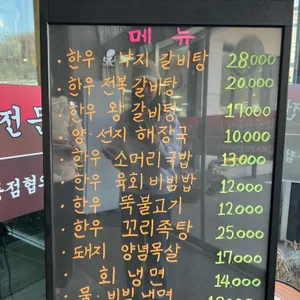 메 뉴
· 한우 낙지 갈비탕 28.000
· 한우 전복 갈비탕 20.000
· 한우 왕 갈비탕 17.000
· 양·선지 해장국 10.000
· 한우 소머리국밥 13.000
· 한우 육회비빔밥 12.000
· 한우 뚝불고기 12.000
· 한우 꼬리족탕 25.000
· 돼지 양념목살 17.000
· 회 냉면 14.000
· 물·비빔냉면
전문